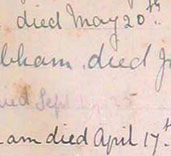 died May 20th
bham died J
ied Sept 5
am died April 17th